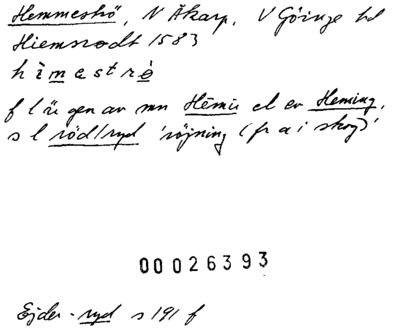 Hemmeströ, N Åkarp, V Göinge hd
Hiemsrodt 1583
hìmaströ̀
f l är gen av mn Hēmir el ev Heming,
s l röd/ryd 'röjning (fr a i skog)'
00026393
Ejder-ryd s 191 f